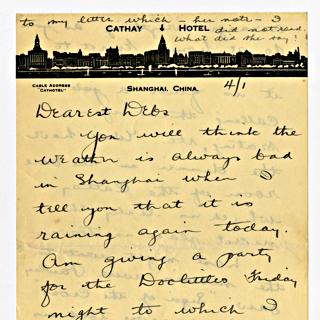 to my letter which - her note - I
did not read.
What did she say?
CATHAY HOTEL
CABLE ADDRESS
"CATHOTEL"
SHANGHAI, CHINA.
4/1
Dearest Debs
You will think the
weather is always bad
in Shanghai when I
tell you that it is
raining again today.
Am giving a party
for the Doolittles Friday
night to which I